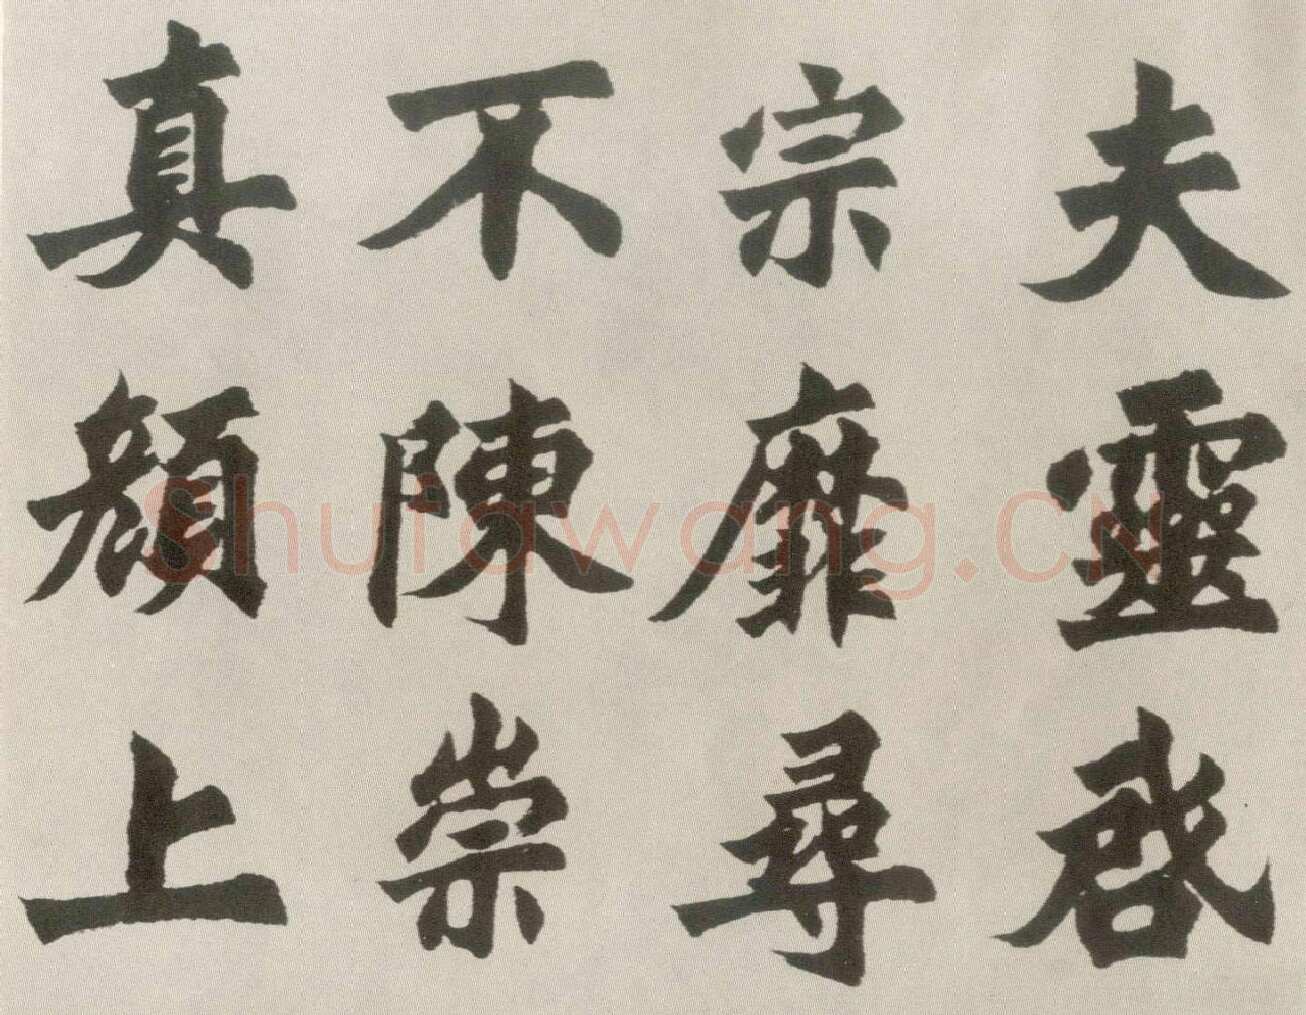 夫靈啟
宗靡尋
不陳崇
真顏上
Shufawang.CN